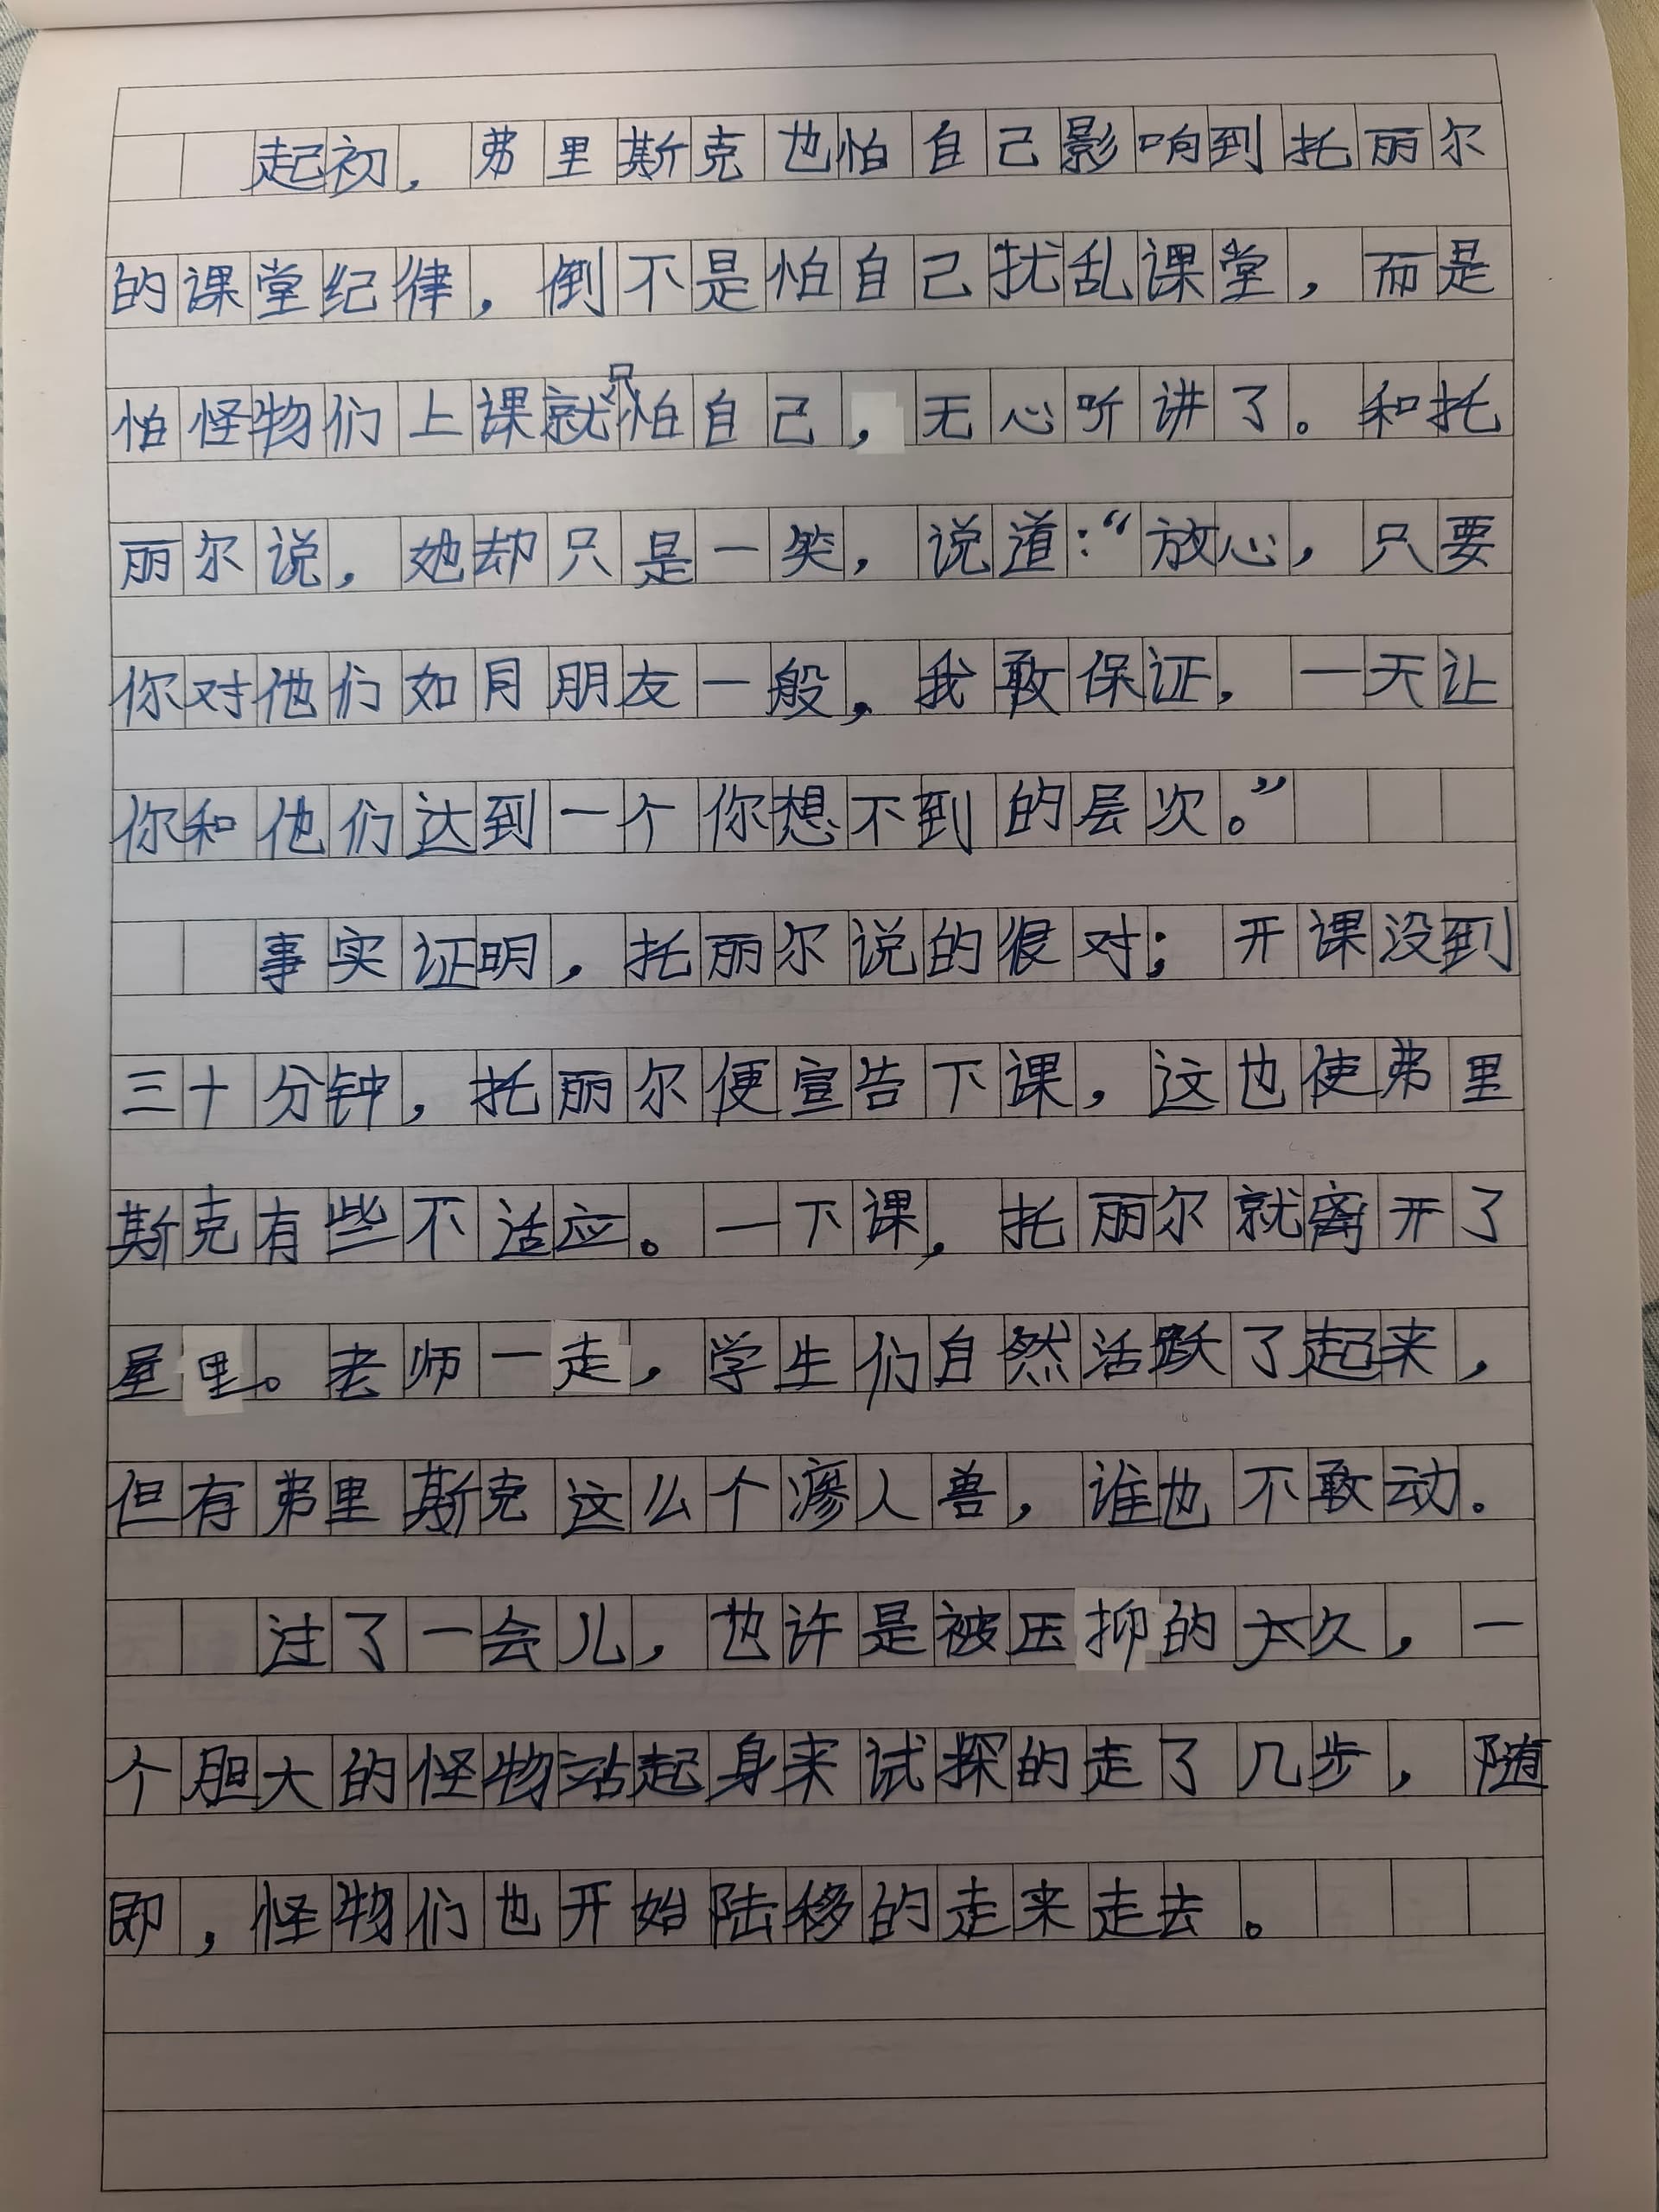 起初，弗里斯克也怕自己影响到托丽尔
的课堂纪律，倒不是怕自己扰乱课堂，而是
怕怪物们上课就只怕自己，无心听讲了。和托
丽尔说，她却只是一笑，说道：“放心，只要
你对他们如同朋友一般，我敢保证，一天让
你和他们达到一个你想不到的层次。”
事实证明，托丽尔说的很对；开课没到
三十分钟，托丽尔便宣告下课，这也使弗里
斯克有些不适应。一下课，托丽尔就离开了
屋里。老师一走，学生们自然活跃了起来，
但有弗里斯克这么个瘆人兽，谁也不敢动。
过了一会儿，也许是被压抑的太久，一
个胆大的怪物站起身来试探的走了几步，随
即，怪物们也开始陆移的走来走去。